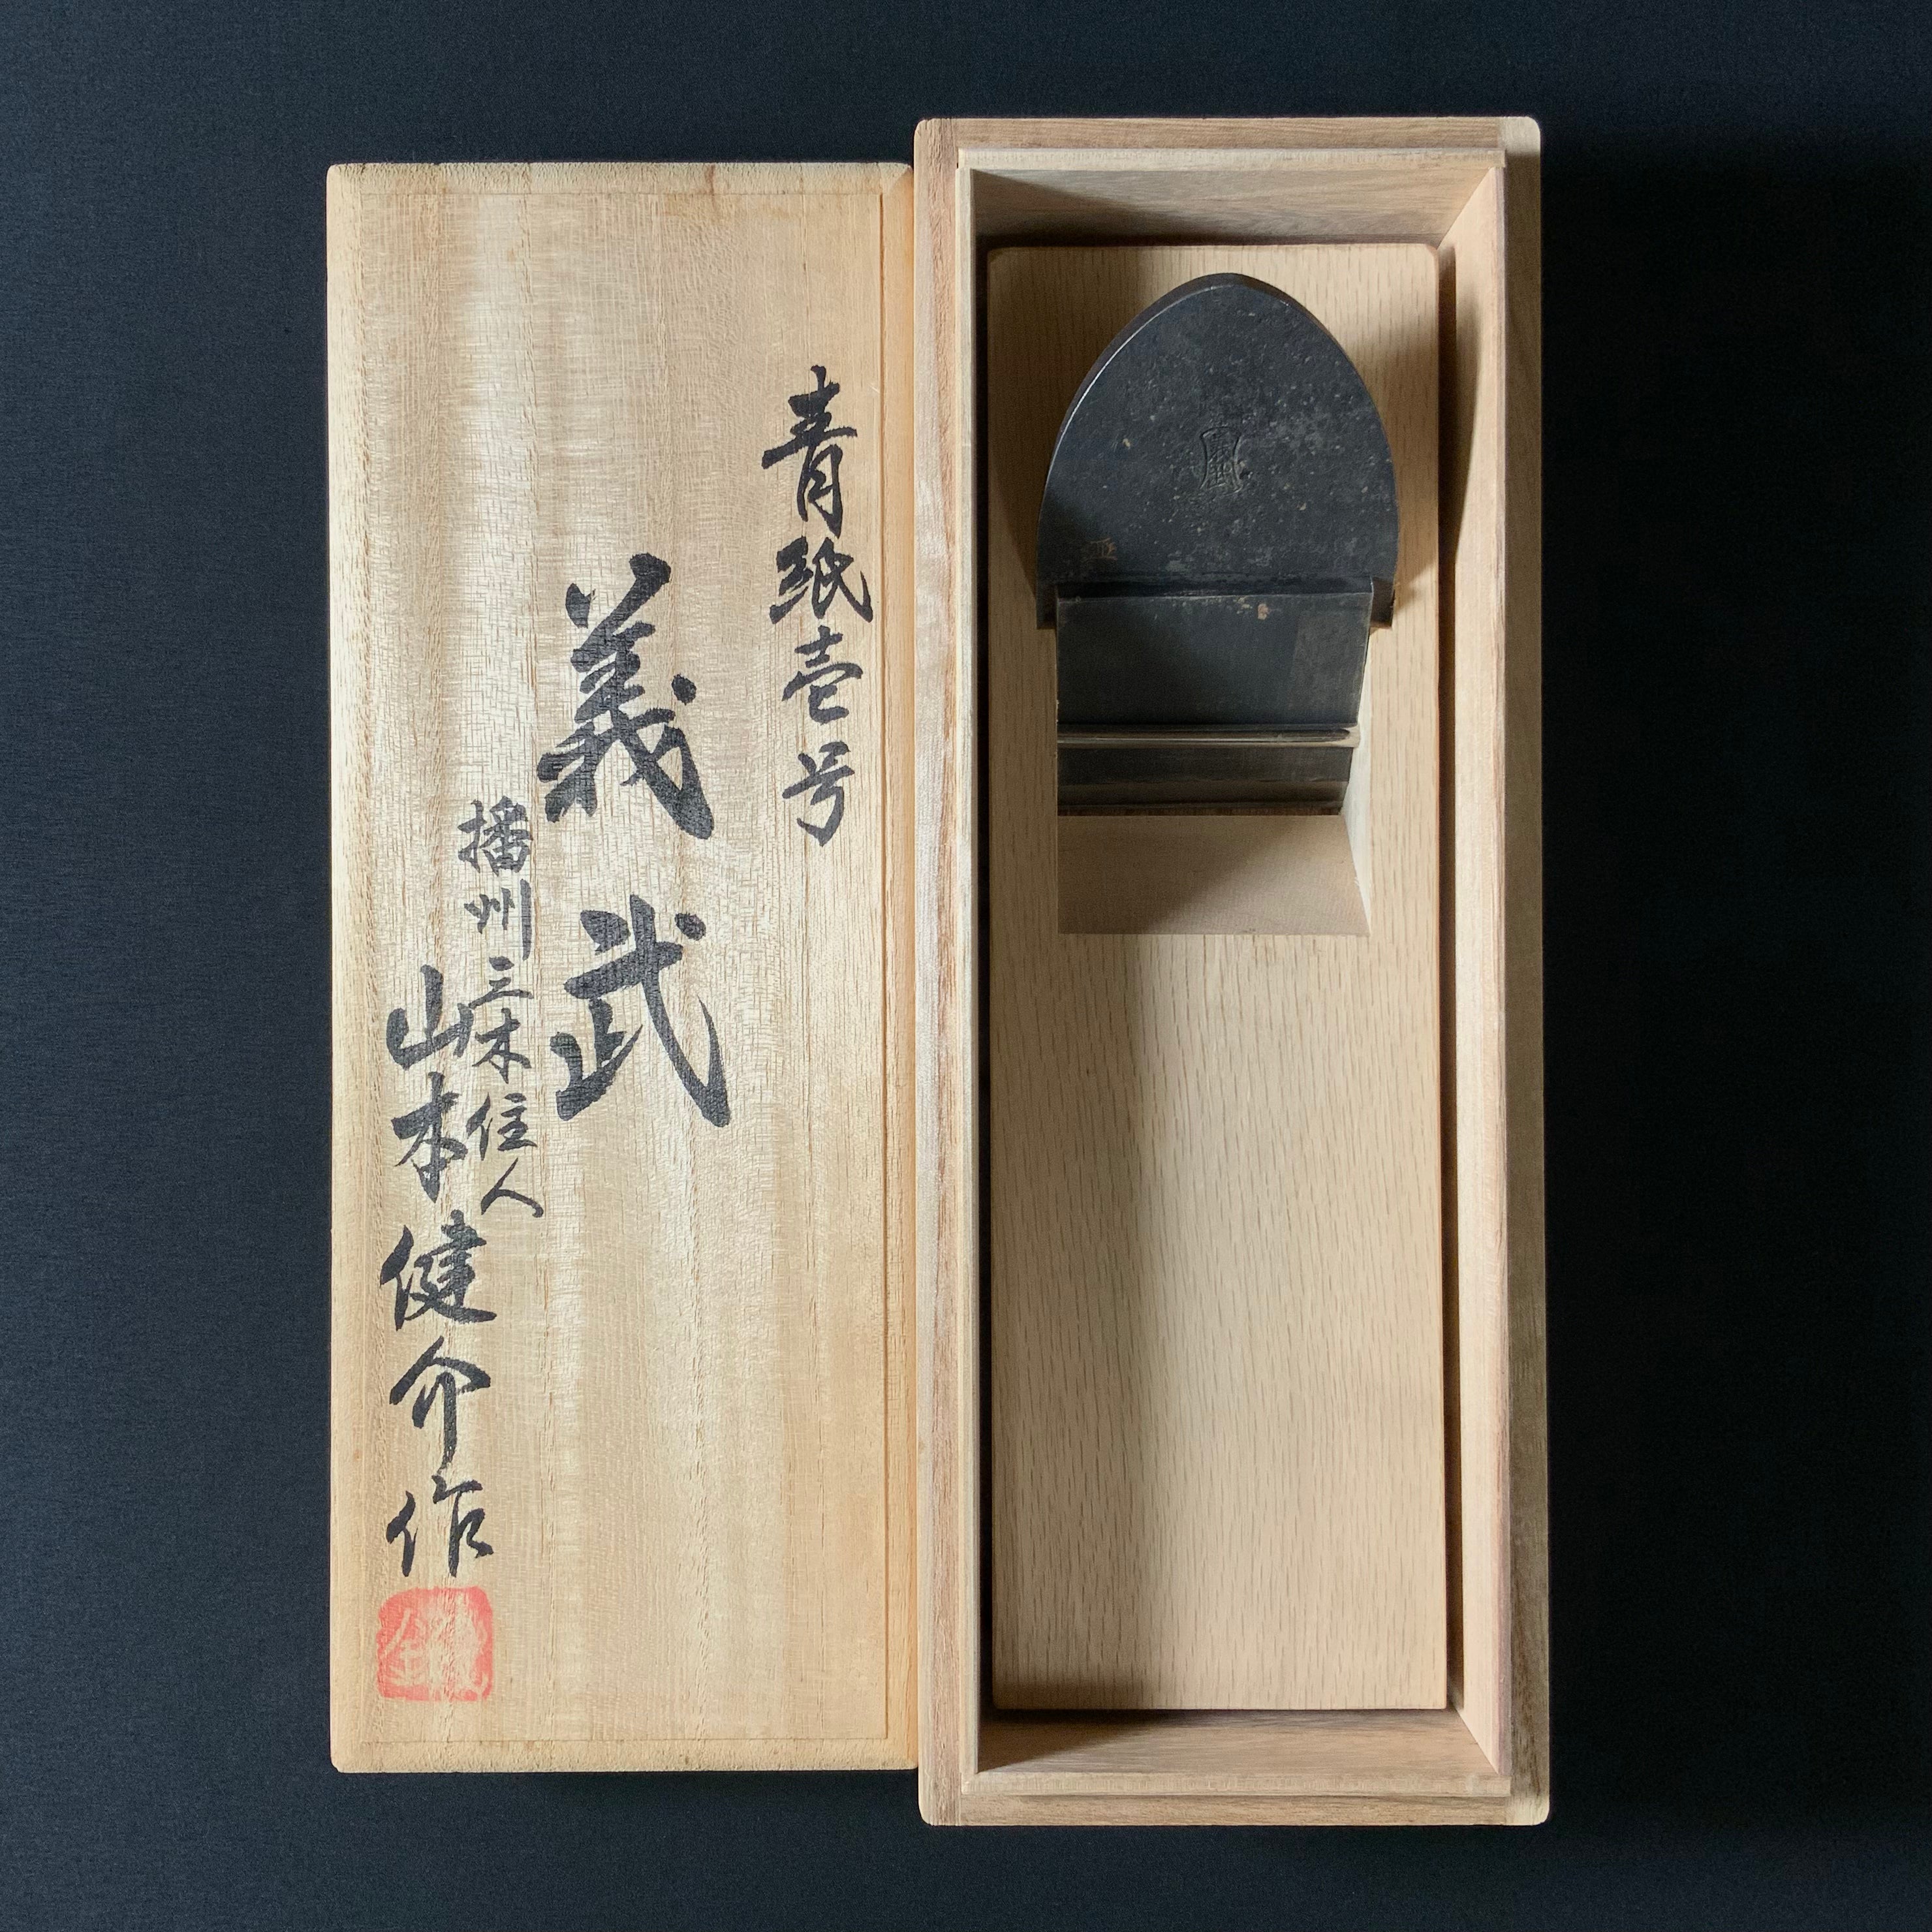 青紙壱号
義武
播州三木住人
山本健介作